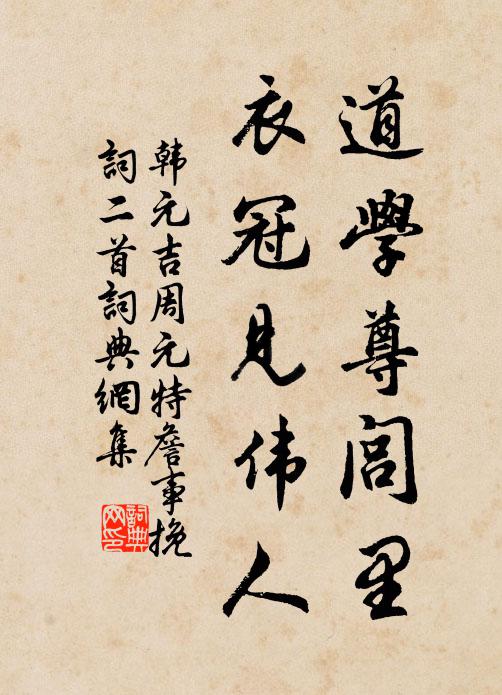 道學尊閭里
衣冠見伟人
韩元吉周元特詹事挽
詞二首詞典網集
詞典网印